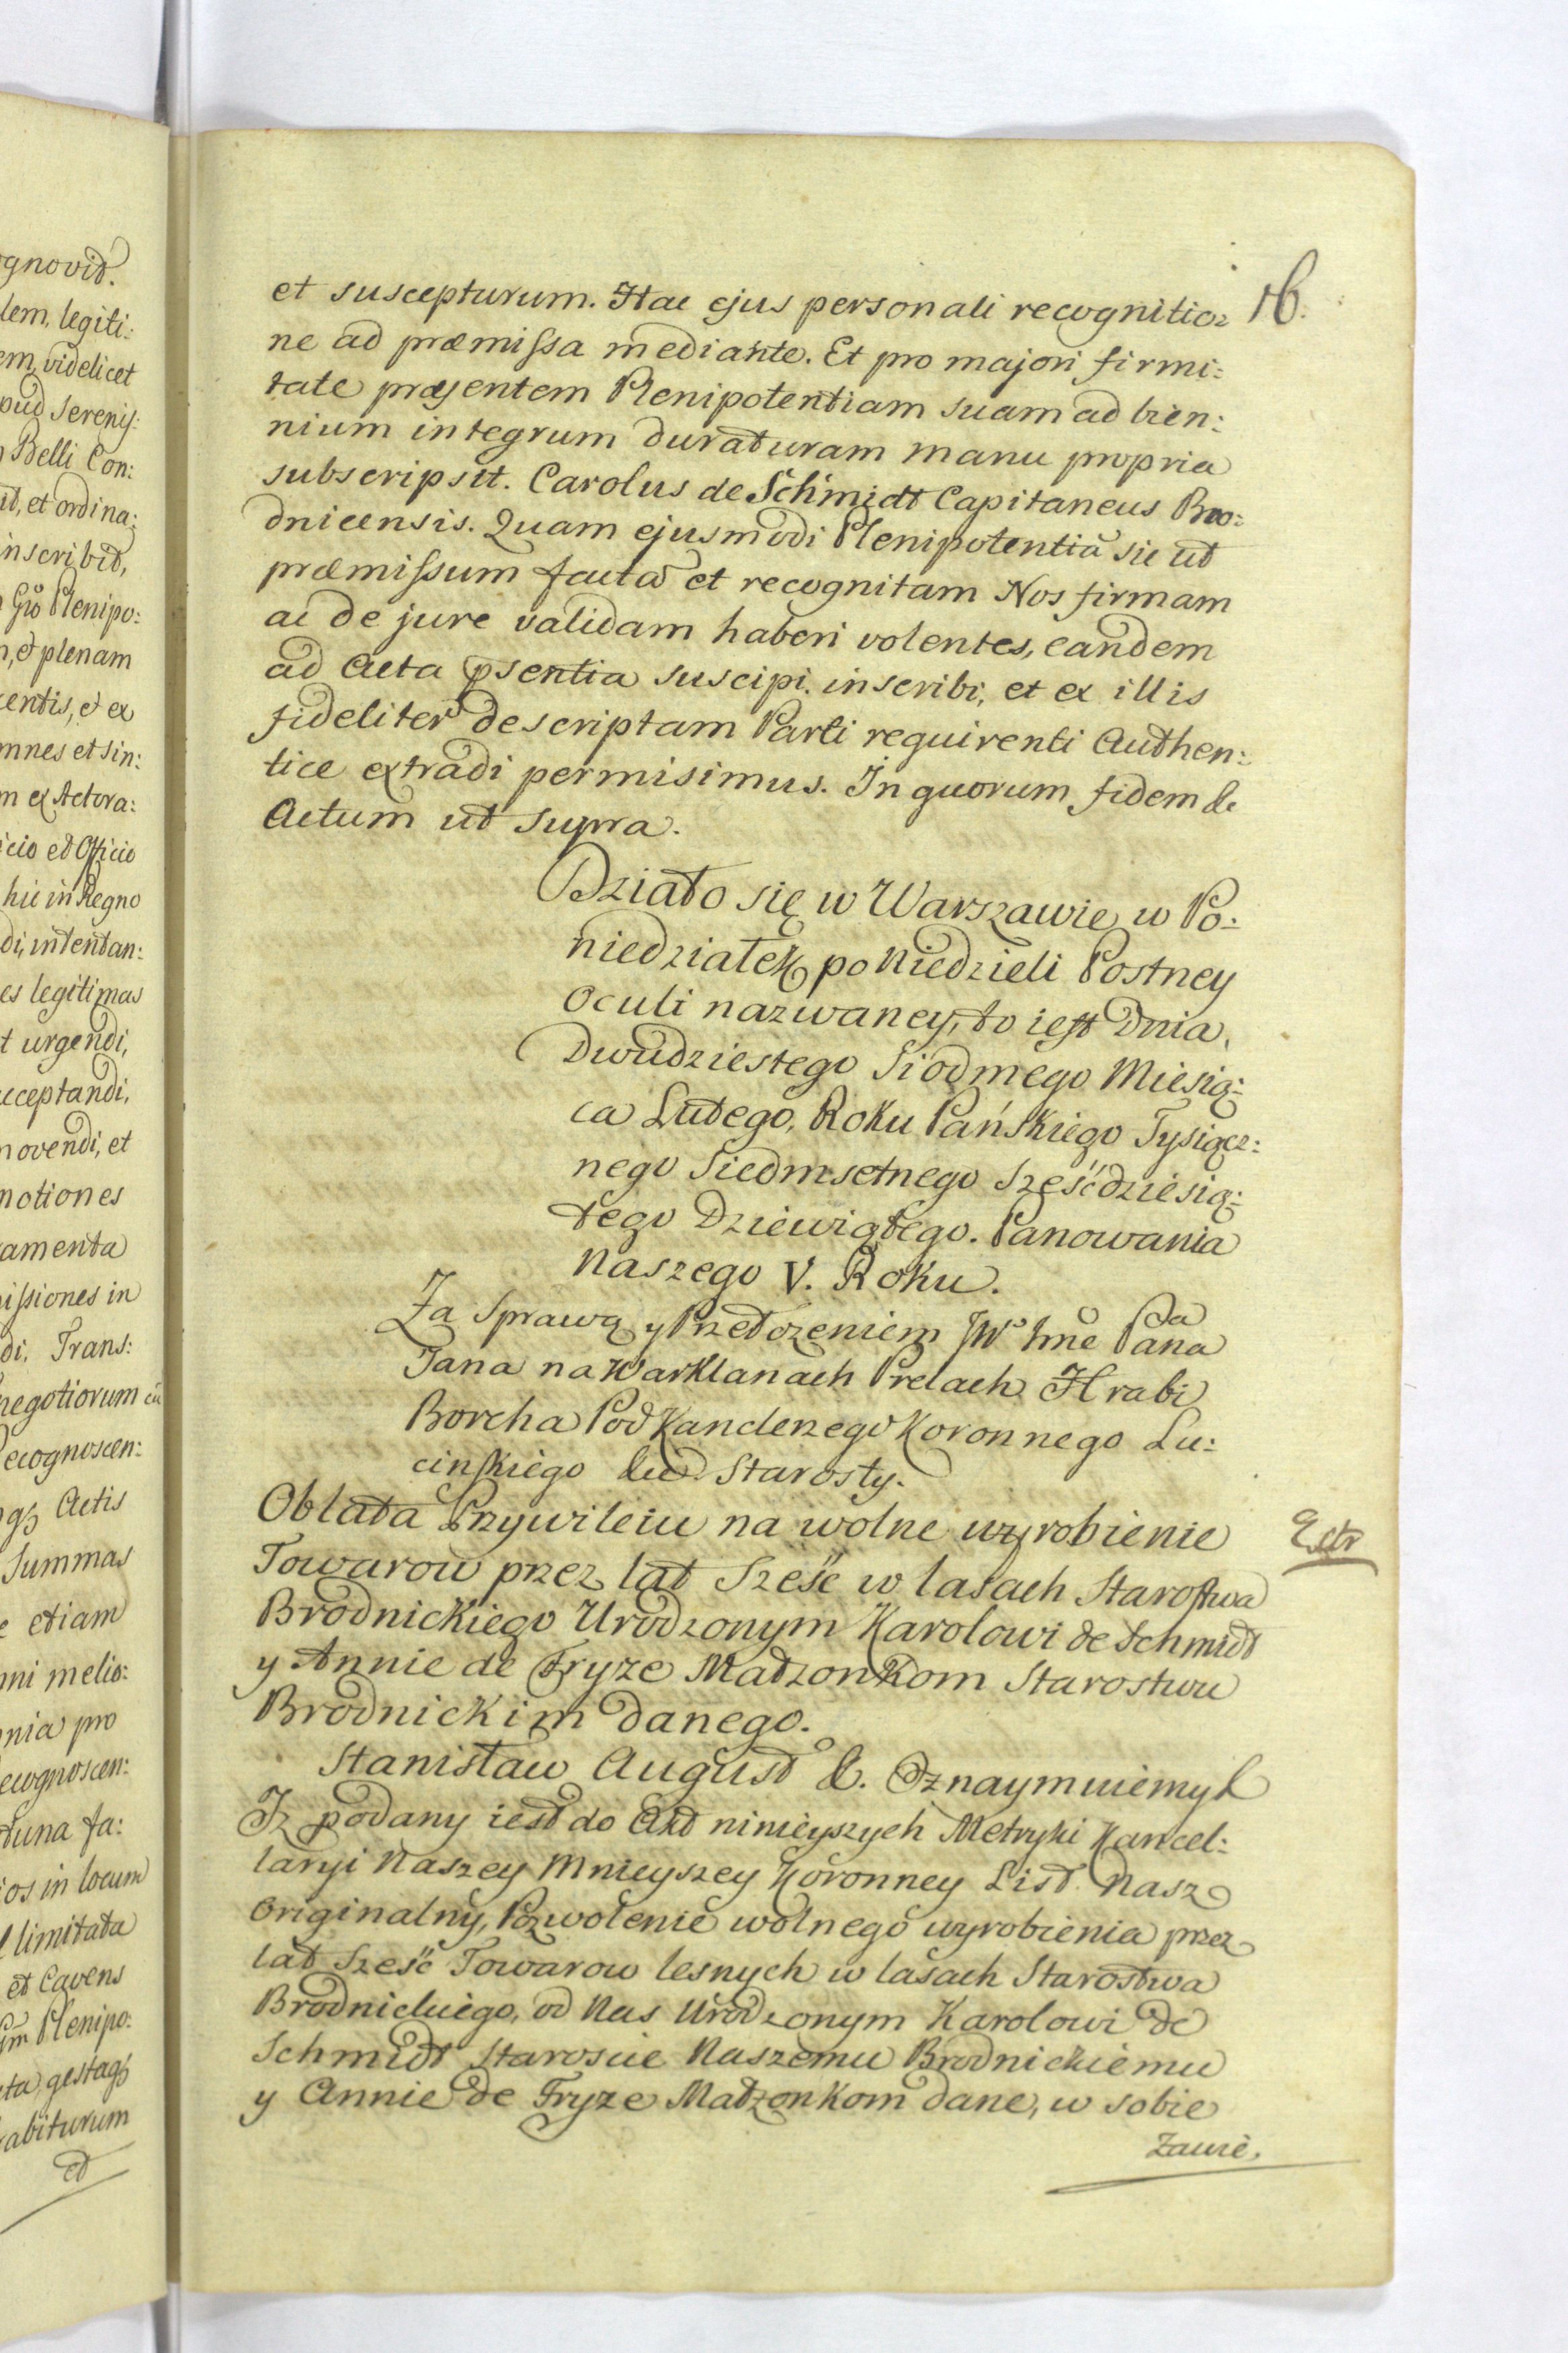 gnovit.
lem, legiti:
em, videlicet
pud Serenis:
Belli Con:
it, et ordina:
inscribit,
Gio Plenipo:
m, et plenam
centis, et ex
mnes et sin:
m ex Actora:
icio et Officio
hic in Regno
di, intentan:
es legitimas
t urgendi,
cceptandi,
movendi, et
motiones
ramenta
issiones in
di, Trans:
negotiorum cũ
Recognoscen:
Actis
Summas
e etiam
mni melio:
mnia pro
ecognoscen:
tuna fa:
ios in locum
l limitata
et Cavens
Plenipo:
ta, gestaqȝ
abiturum
et
16.
et suscepturum. Hac ejus personali recognitio:
ne ad præmissa mediante. Et pro majori firmi:
tate præsentem Plenipotentiam suam ad bien:
nium integrum duraturam manu propria
subscripsit. Carolus de Schmidt Capitaneus Bro:
dnicensis. Quam ejusmodi Plenipotentiã sic ut
præmissum factã et recognitam Nos firmam
ac de jure validam haberi volentes, eandem
ad Acta psentia suscipi, inscribi, et ex illis
fideliter descriptam Parti requirenti Authen:
tice extradi permisimus. In quorum fidem &
Actum ut supra.
Działo się w Warszawie w Po:
niedziałek po Niedzieli Postney
Oculi nazwaney, to iest Dnia
Dwudziestego Siodmego Miesią:
ca Lutego, Roku Pańskiego Tysiącz:
nego Siedmsetnego Sześćdziesią:
tego Dziewiątego. Panowania
Naszego V. Roku.
Za Sprawą y Przełożeniem JWo Jmć Pa
Pana
Jana na Warklanach Prelach Hrabi
Borcha Podkanclerzego Koronnego Lu:
cinskiego &c. Starosty.
Oblata Przywileiu na wolne wyrobienie
Extr
Towarow przez lat Sześć w lasach Starostwa
Brodnickiego Urodzonym Karolowi de Schmidt
y Annie de Fryze Małzonkom Starostwu
Brodnickim danego.
Stanisław August &. Oznaymuiemy &
Iz podany iest do Akt ninieyszych Metryki Kancel:
laryi Naszey Mnieyszey Koronney List Nasz
Originalny, Pozwolenie wolnego wyrobienia przez
lat Sześć Towarow lesnych w lasach Starostwa
Brodnickiego, od Nas Urodzonym Karolowi de
Schmidt Staroscie Naszemu Brodnickiemu
y Annie de Fryze Małzonkom dane, w sobie
Zawie.